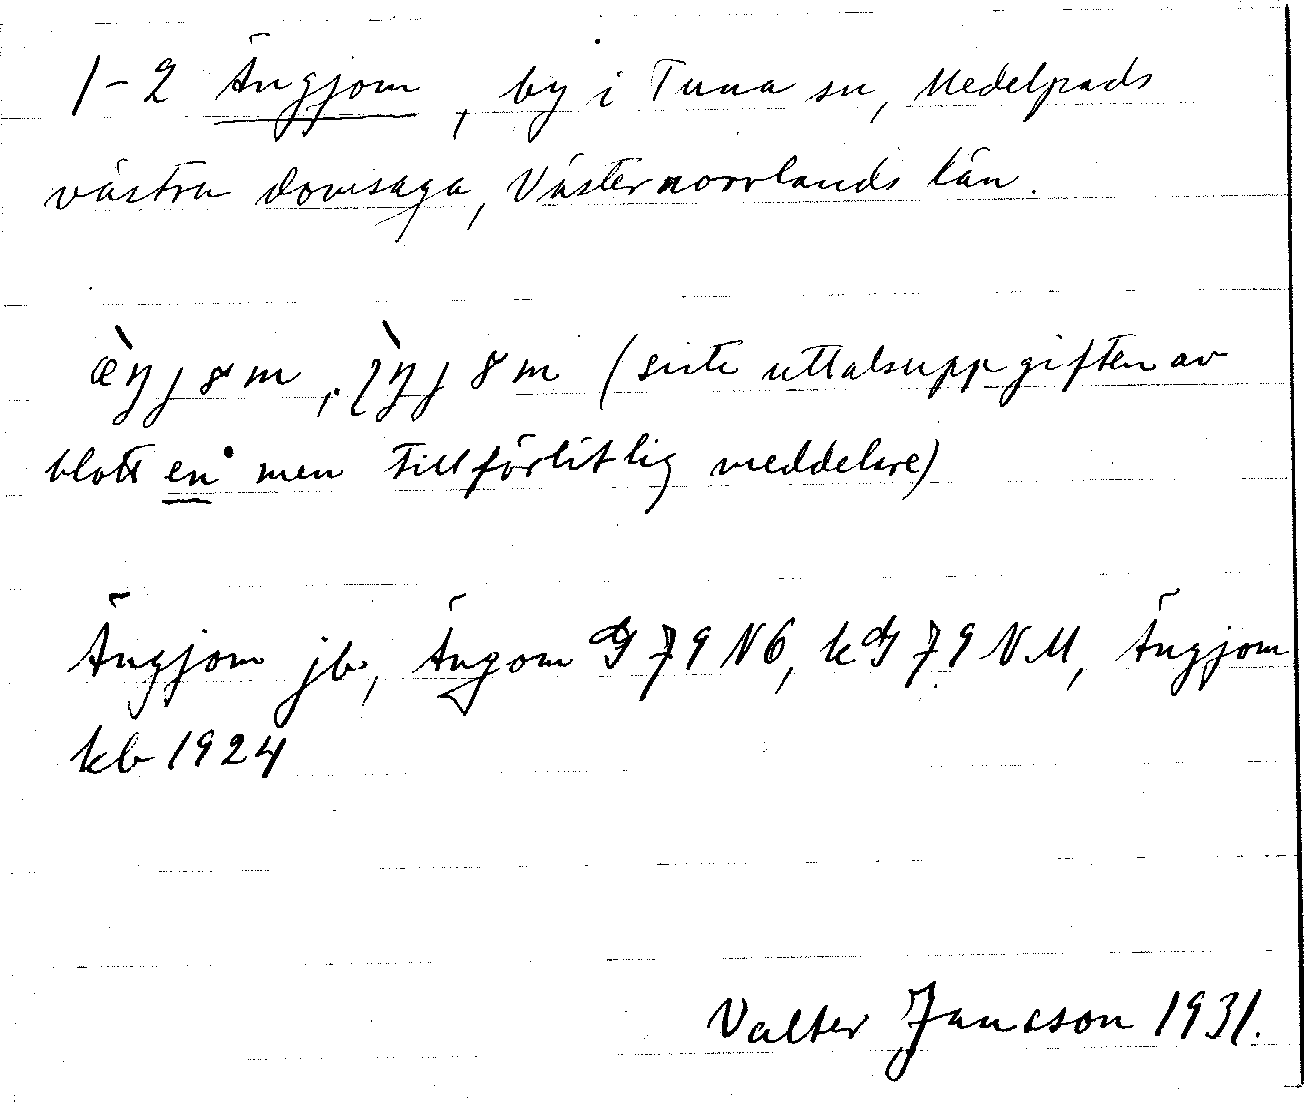 1-2 Ängjom, by i Tuna sn, Medelpads
västra domsaga, Västernorrlands län.
(siste uttalsuppgiften av
blott en men tillförlitlig meddelare)
Ängjom jb, Ängom 79 NÖ, k 79 NV, Ängjom
kb 1924
Valter Jansson 1931.